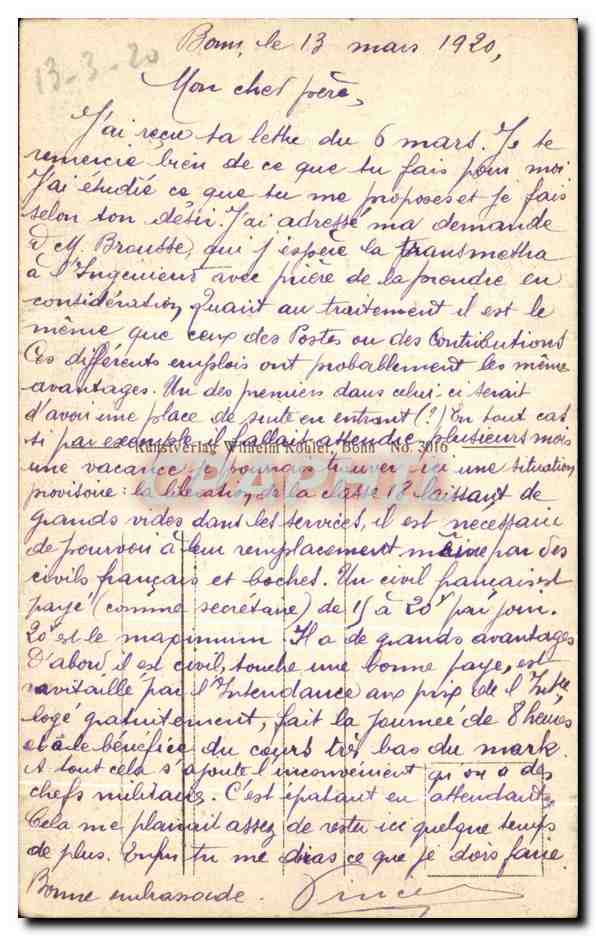 Bonn, le 13 mars 1920,
13-3-20
Mon cher frère,
J'ai reçu ta lettre du 6 mars. Je te
remercie bien de ce que tu fais pour moi
J'ai étudié ce que tu me proposes et je fais
selon ton désir. J'ai adressé ma demande
à M. Brousse, qui j'espère la transmettra
à l'Ingénieur avec prière de la prendre en
considération, Quant au traitement il est le
même que ceux des Postes ou des Contributions
Ces différents emplois ont probablement les même
avantages. Un des premiers dans celui-ci serait
d'avoir une place de suite en entrant (?) En tout cas
si par exemple il fallait attendre plusieurs mois
Kunstverlag Wilhelm Köhler, Bonn No. 3016
une vacance je pourrais trouver ici une situation
provisoire : la libération de la classe 18 laissant de
grands vides dans les services, il est nécessaire
de pourvoir à leur remplacement même par des
civils français et boches. Un civil français est
payé (comme secrétaire) de 15 à 20f par jour.
20f est le maximum Il a de grands avantages
D'abord il est civil, touche une bonne paye, est
ravitaillé par l'Intendance aux prix de l'Intce,
logé gratuitement, fait la journée de 8 heures
et a le bénéfice du cours très bas du mark.
A tout cela s'ajoute l'inconvénient qu'on a des
chefs militaires. C'est épatant en attendant
Cela me plairait assez de rester ici quelque temps
de plus. Enfin tu me diras ce que je dois faire.
Bonne embrassade.